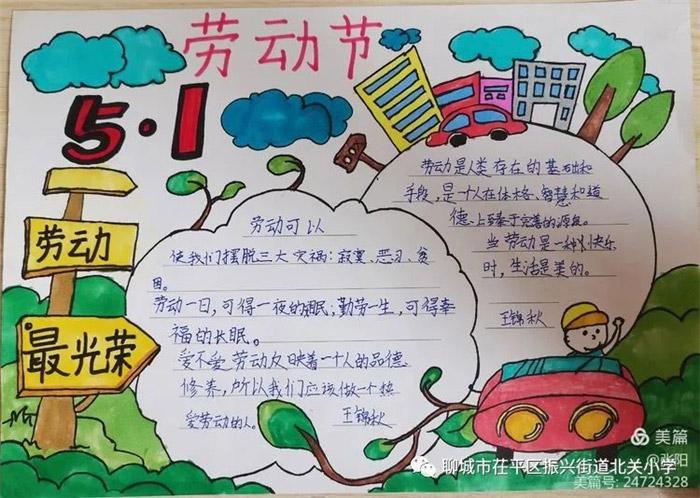 劳动节
5·1
劳动
最光荣
劳动可以
使我们摆脱三大灾祸:寂寞、恶习、贫
困。
劳动一日,可得一夜的安眠;勤劳一生,可得幸
福的长眠。
爱不爱劳动反映着一个人的品德
修养,所以我们应该做一个热
爱劳动的人。 王锦秋
劳动是人类存在的基础和
手段,是一个人在体格、智慧和道
德上臻于完善的源泉。
当劳动是一种快乐
时,生活是美的。
王锦秋
美篇
@张阳
聊城市茌平区振兴街道北关小学
美篇号: 24724328